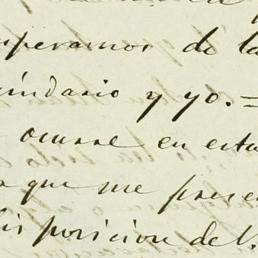 speramos de la
indario y yo. =
ocurre en esta
que me prese
disposicion de V.